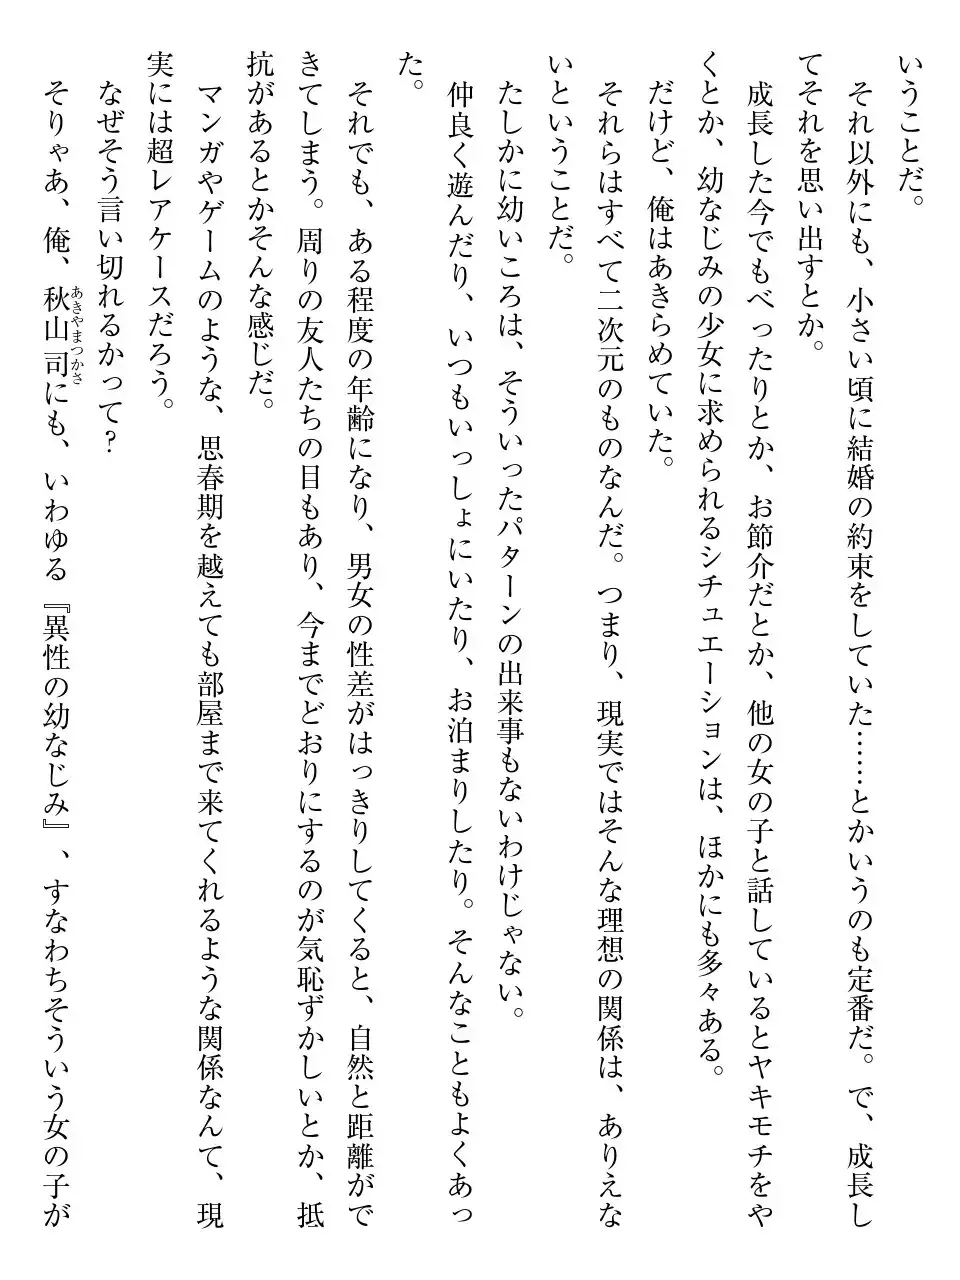 いうことだ。
それ以外にも、小さい頃に結婚の約束をしていた……とかいうのも定番だ。で、成長し
てそれを思い出すとか。
成長した今でもべったりとか、お節介だとか、他の女の子と話しているとヤキモチをや
くとか、幼なじみの少女に求められるシチュエーションは、ほかにも多々ある。
だけど、俺はあきらめていた。
それらはすべて二次元のものなんだ。つまり、現実ではそんな理想の関係は、ありえな
いということだ。
たしかに幼いころは、そういったパターンの出来事もないわけじゃない。
仲良く遊んだり、いつもいっしょにいたり、お泊まりしたり。そんなこともよくあっ
た。
それでも、ある程度の年齢になり、男女の性差がはっきりしてくると、自然と距離がで
きてしまう。周りの友人たちの目もあり、今までどおりにするのが気恥ずかしいとか、抵
抗があるとかそんな感じだ。
マンガやゲームのような、思春期を越えても部屋まで来てくれるような関係なんて、現
実には超レアケースだろう。
なぜそう言い切れるかって?
そりゃあ、俺、秋山司にも、いわゆる『異性の幼なじみ』、すなわちそういう女の子が
あきやまつかさ